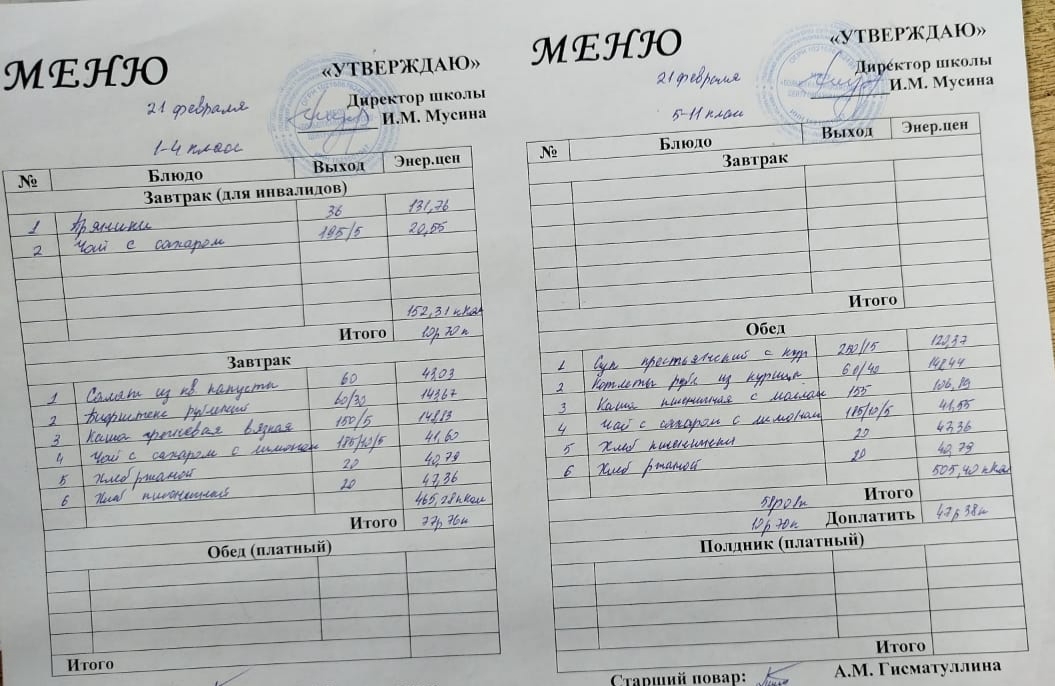 МЕНЮ
«УТВЕРЖДАЮ»
21 февраля
Директор школы
И.М. Мусина
1-4 класс
№ Блюдо Выход Энер.цен
Завтрак (для инвалидов)
1 Пряники 36 131,76
2 Чай с сахаром 195/5 20,55
152,31 ккал
Итого 10р 70к
Завтрак
1 Салат из кв капусты 60 43,03
2 Бифштекс рубленый 60/30 143,67
3 Каша гречневая вязкая 150/5 148,83
4 Чай с сахаром с лимоном 185/10/5 41,60
5 Хлеб ржаной 20 40,79
6 Хлеб пшеничный 20 47,36
465,28 ккал
Итого 77р 76к
Обед (платный)
Итого
МЕНЮ
«УТВЕРЖДАЮ»
21 февраля
Директор школы
И.М. Мусина
5-11 класс
№ Блюдо Выход Энер.цен
Завтрак
Итого
Обед
1 Суп крестьянский с кур 250/15
2 Котлеты руб из курицы 60/40
3 Каша пшеничная с маслом 155 106,19
4 Чай с сахаром с лимоном 185/10/5 41,55
5 Хлеб пшеничн 20 47,36
6 Хлеб ржаной 20 40,79
505,40 ккал
Итого
10р 70к Доплатить 47р 38к
Полдник (платный)
Итого
Старший повар: А.М. Гисматуллина